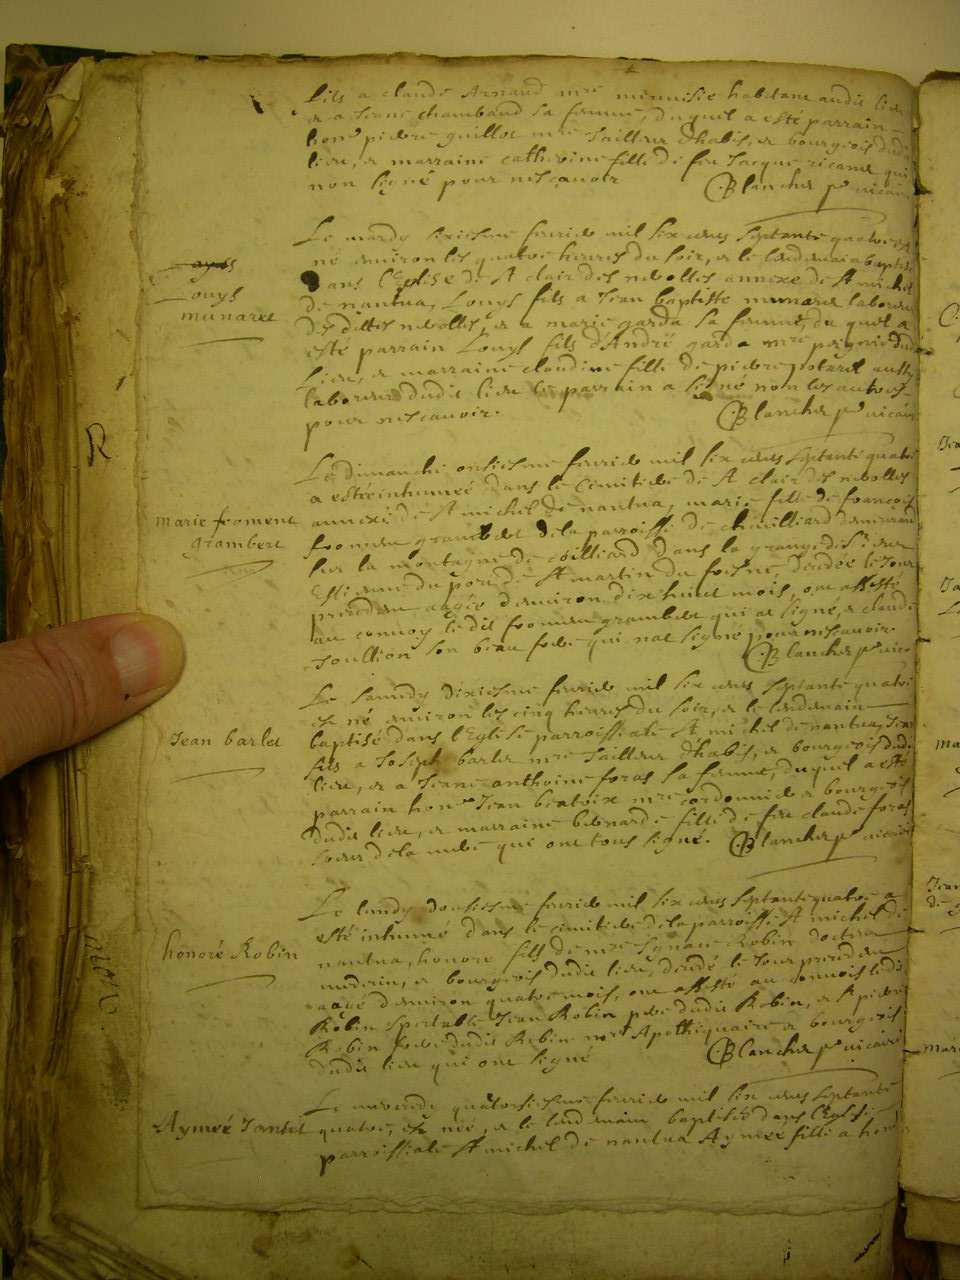 fils a claude Arnaud mre menusie habitant audit lieu
et a Jeane chambaud sa femme, duquel a esté parrain
hone pierre guillot mre Tailleur d'habis, et bourgeois dudit
lieu, et marraine catherine fille de feu Jacque ricame qui
non signé pour ne sçavoir
Blanchet pre vicaire
Louys
munaret
Le mardy sixiesme feuvrie mil six cens septante quatre est
né environ les quatre heures du soir, et le lendemain baptisé
dans l'Eglise de St clair des nebolles annexe de St michel
de nantua, Louys fils a Jean baptiste munaret laboreur
desdittes nebolles, et a marie garda sa femme, duquel a
esté parrain Louys fils d'André garda mre dudit
lieu, et marraine claudine fille de pierre aussy
laboreur dudit lieu le parrain a signé non les autres
pour ne sçavoir.
Blanchet pre vicaire
R
marie froment
grambert
Le dimanche onsiesme feuvrie mil six cens septante quatre
a esté inhumeé dans le cimitiere de St clair des nebolles
annexe de St michel de nantua, marie fille de françois
froment grambert de la parroisse de chevilliard demeurant
sur la montagne de dans la grange de Sr
Estienne du port de St martin du fresne, decedeé le Jour
precedent aageé d'environ dix huict mois, ont assisté
au convoy ledit froment grambert qui at signé, et claude
Joullion son beau frere qui nat signé pour ne sçavoir.
Blanchet pre vicaire
Jean barlet
Le samedy dixiesme feuvrie mil six cens septante quatre
est né environ les cinq heures du soir, et le lendemain
baptisé dans l'Eglise parroissiale St michel de nantua, Jean
fils a Joseph barlet mre Tailleur d'habis, et bourgeois dudit
lieu, et a Jeane anthoine foras sa femme, duquel a esté
parrain hone Jean beatrix mre cordonnie et bourgeois
dudit lieu, et marraine bernarde fille de feu claude foras
soeur de la mere qui ont tous signé.
Blanchet pre vicaire
honoré Robin
Le lundy dousiesme feuvrie mil six cens septante quatre a
esté inhumé dans le cimitiere de la parroisse St michel de
nantua, honoré fils de mre Ignace Robin docteur
medecin, et bourgeois dudit lieu, decedé le Jour precedent
aagé d'environ quatre mois, ont assisté au convois ledit
Robin Spectable Jean Robin pere dudit Robin, et Sr pierre
Robin frere dudit Robin mre Apothiquaire et bourgeois
dudit lieu qui ont signé
Blanchet pre vicaire
Aymeé Jantet
Le mecredy quatorsiesme feuvrie mil six cens septante
quatre, est neé, et le lendemain baptiseé dans l'Eglise
parroissiale St michel de nantua Aymeé fille a hone